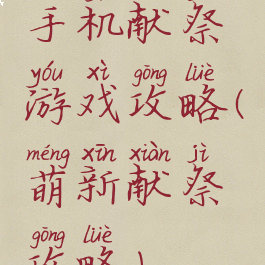 手机献祭
yóu xì gōng lüè
游戏攻略(
méng xīn xiàn jì
萌新献祭
gōng lüè
攻略)